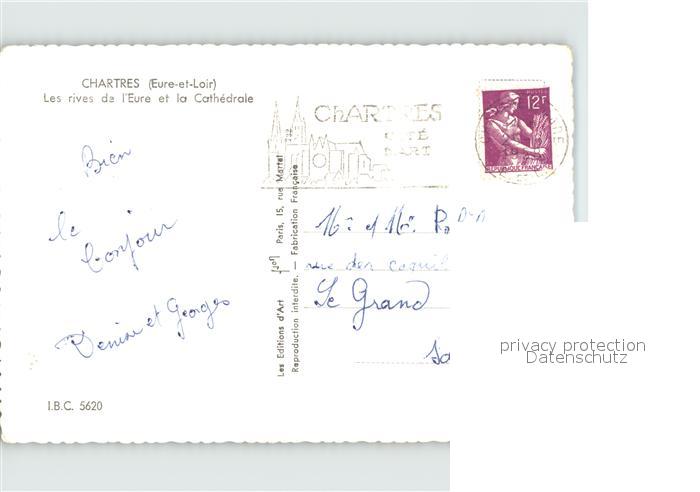 CHARTRES (Eure-et-Loir)
Les rives de l'Eure et la Cathédrale
Bien
le
bonjour
Denise et Georges
I.B.C. 5620
Les Editions d'Art Paris, 15, rue Martel
Reproduction interdite. Fabrication Française
CHARTRES
CITÉ
D'ART
POSTES
12F
REPUBLIQUE FRANÇAISE
Mr et Me. R
1 rue des coquil
Le Grand
privacy protection
Datenschutz